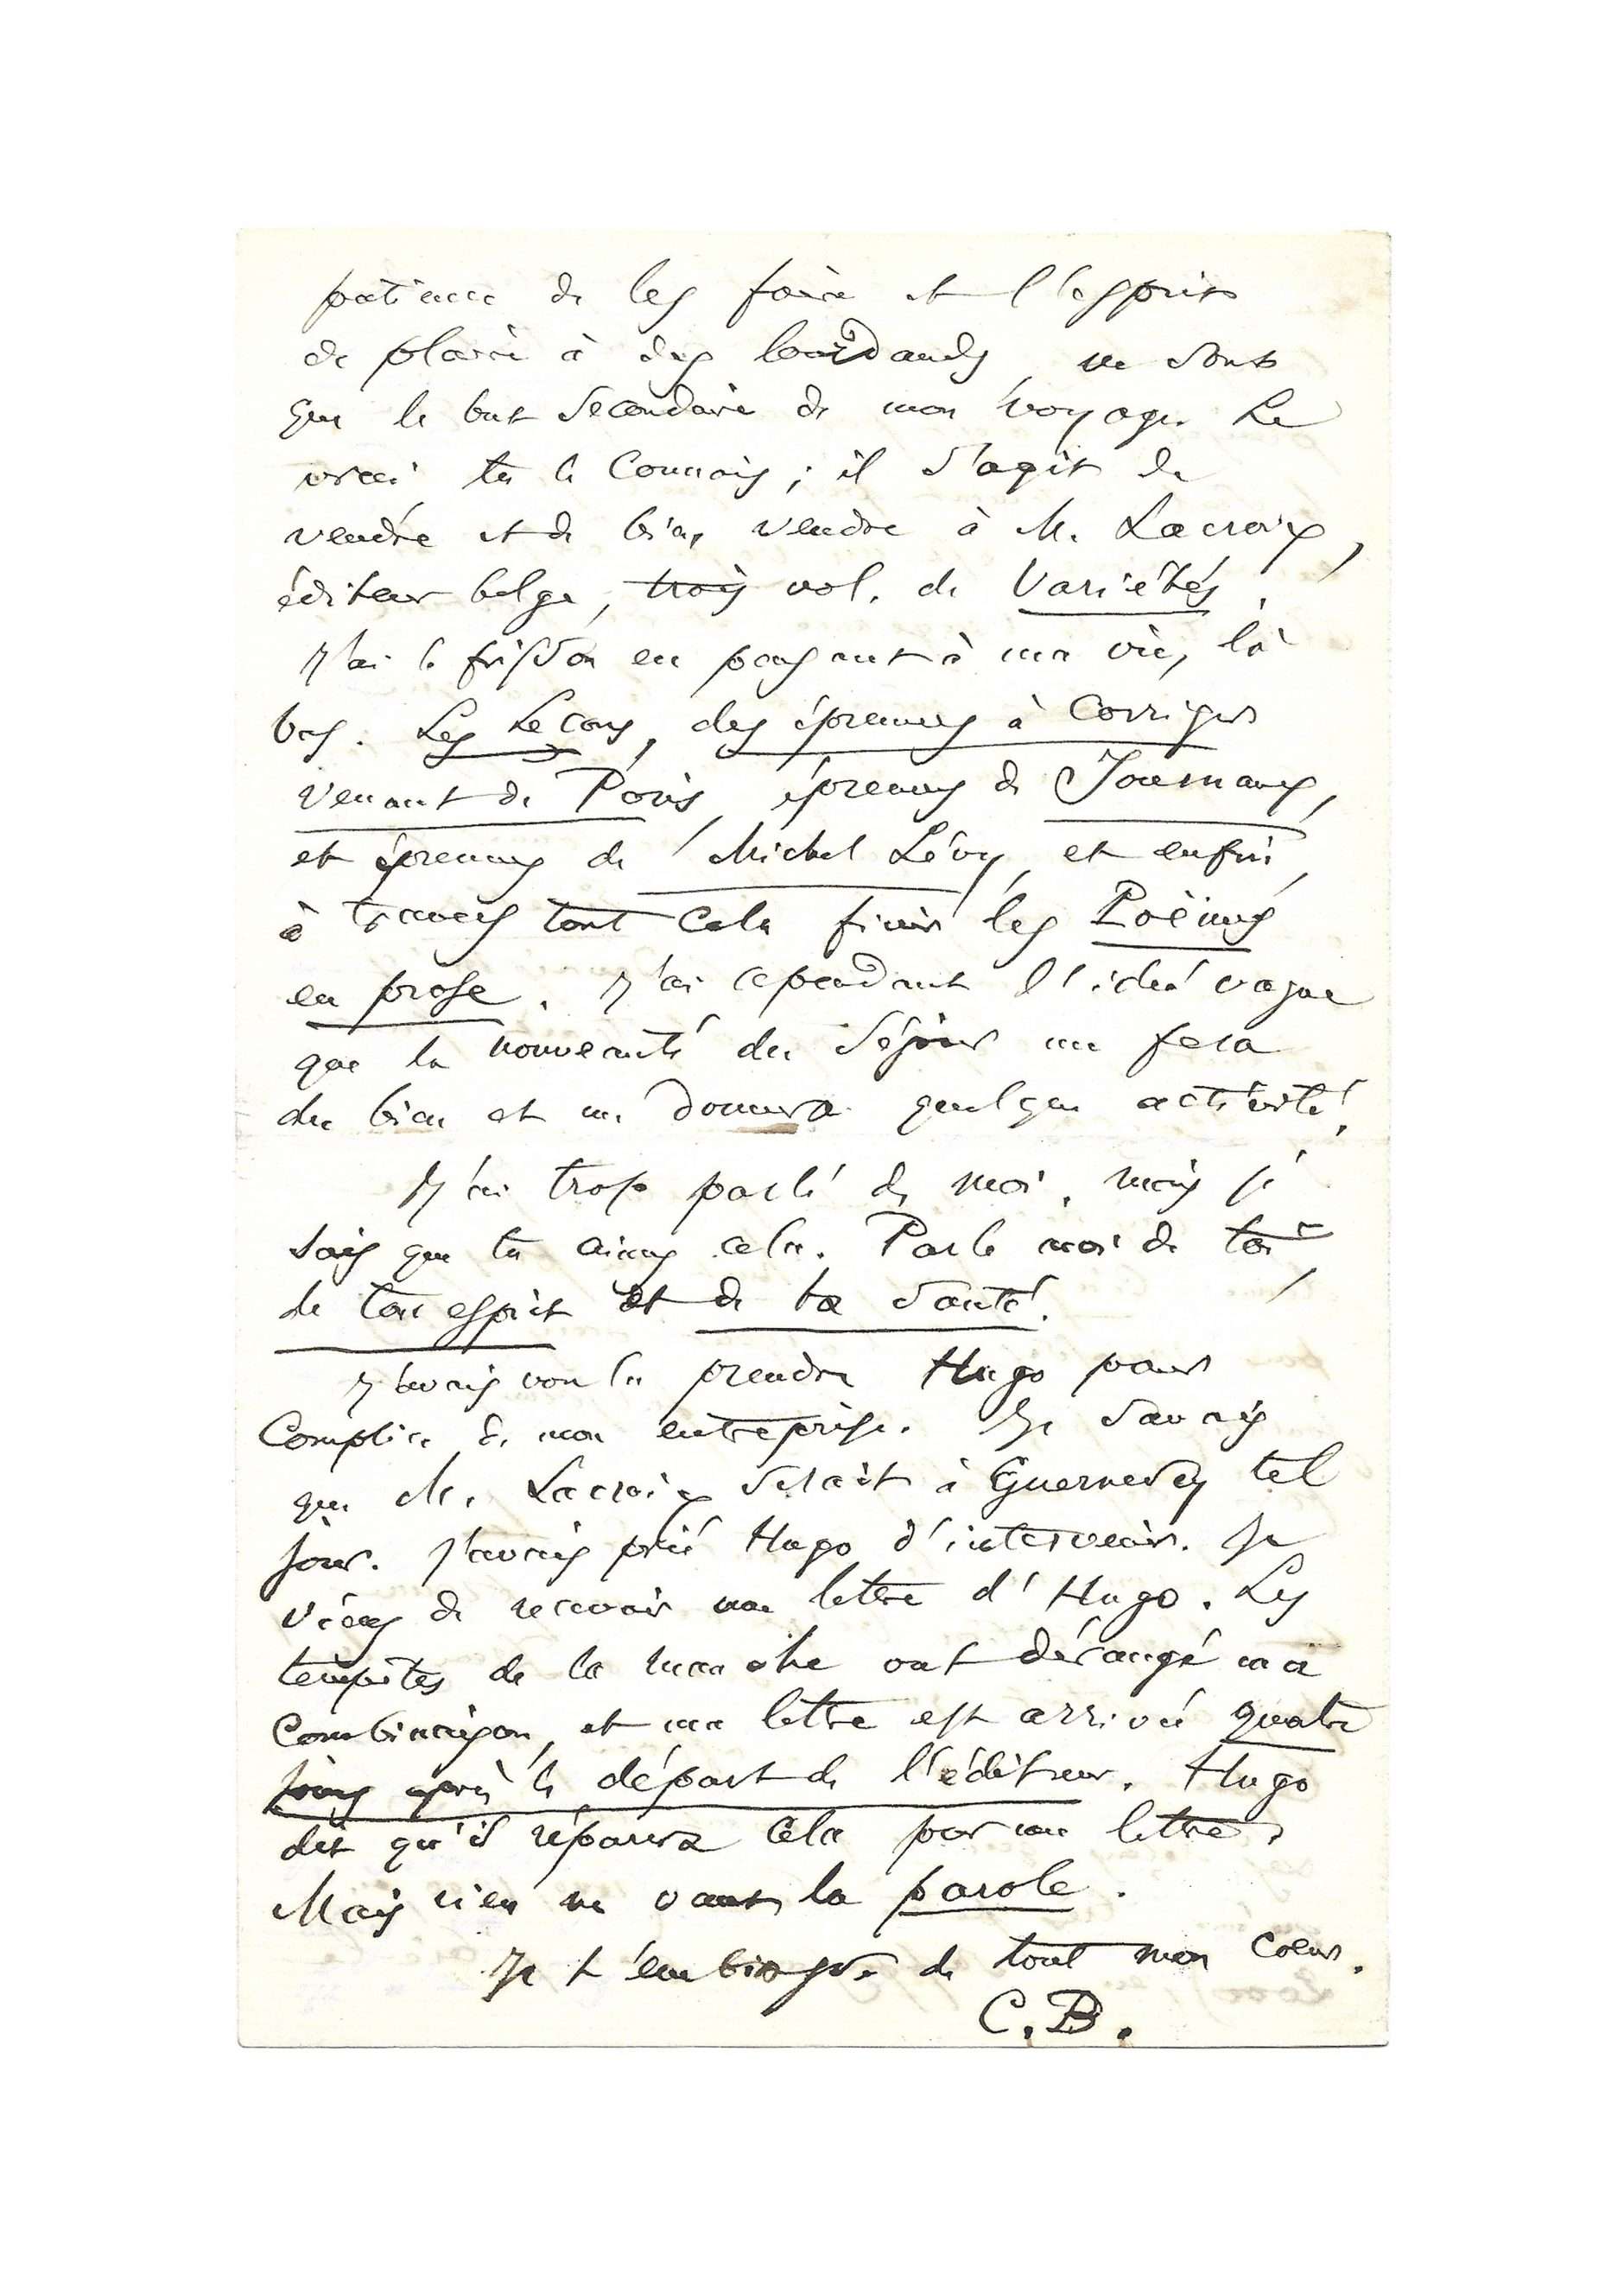 patience de les faire et l'esprit
de plaire à des lourdauds, ne sont
que le but secondaire de mon voyage. Le
vrai tu le connais ; il s'agit de
vendre et de bien vendre à M. Lacroix,
éditeur belge, trois vol. de Variétés.
J'ai le frisson en pensant à ma vie, là
bas. Les Leçons, des épreuves à corriger
venant de Paris, épreuves de Journaux,
et épreuves de Michel Lévy, et enfin,
à travers tout cela finir les Poëmes
en prose. J'ai cependant l'idée vague
que la nouveauté du séjour me fera
du bien et me donnera quelque activité.
J'ai trop parlé de moi, mais je
sais que tu aimes cela. Parle moi de toi,
de ton esprit et de ta santé.
J'avais voulu prendre Hugo pour
complice de mon entreprise. Je savais
que M. Lacroix serait à Guernesey tel
jour. J'avais prié Hugo d'intervenir. Je
viens de recevoir une lettre d'Hugo. Les
tempêtes de la manche ont dérangé ma
combinaison, et ma lettre est arrivée quatre
jours après le départ de l'éditeur. Hugo
dit qu'il réparera cela par une lettre.
Mais rien ne vaut la parole.
Je t'embrasse de tout mon coeur.
C.B.